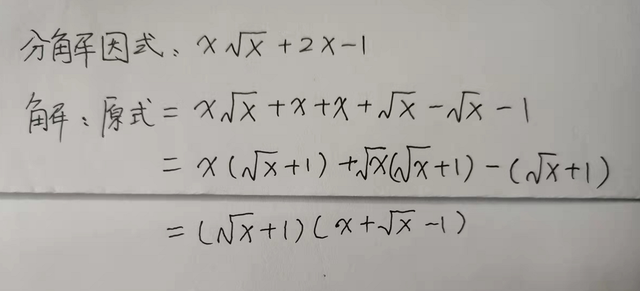 分解因式：x√x + 2x - 1
解：原式 = x√x + x + x + √x - √x - 1
= x(√x + 1) + √x(√x + 1) - (√x + 1)
= (√x + 1)(x + √x - 1)